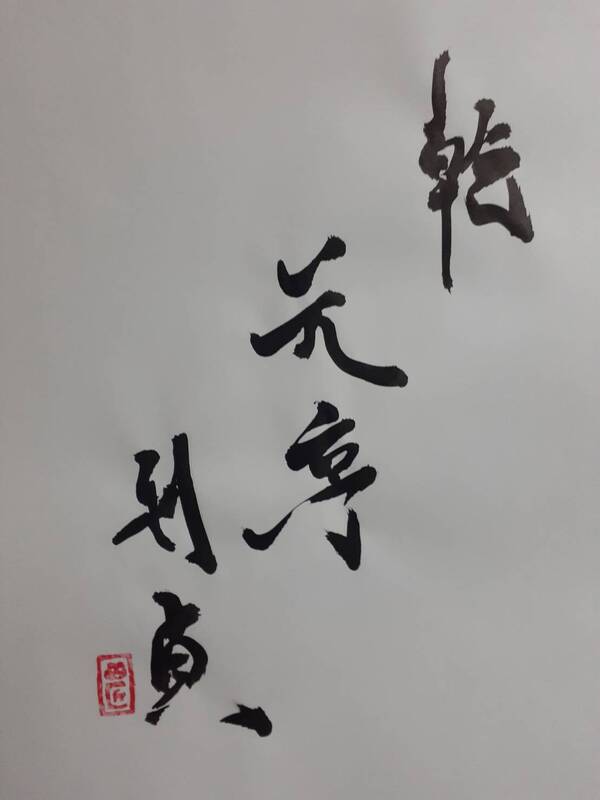 乾
元亨
利貞